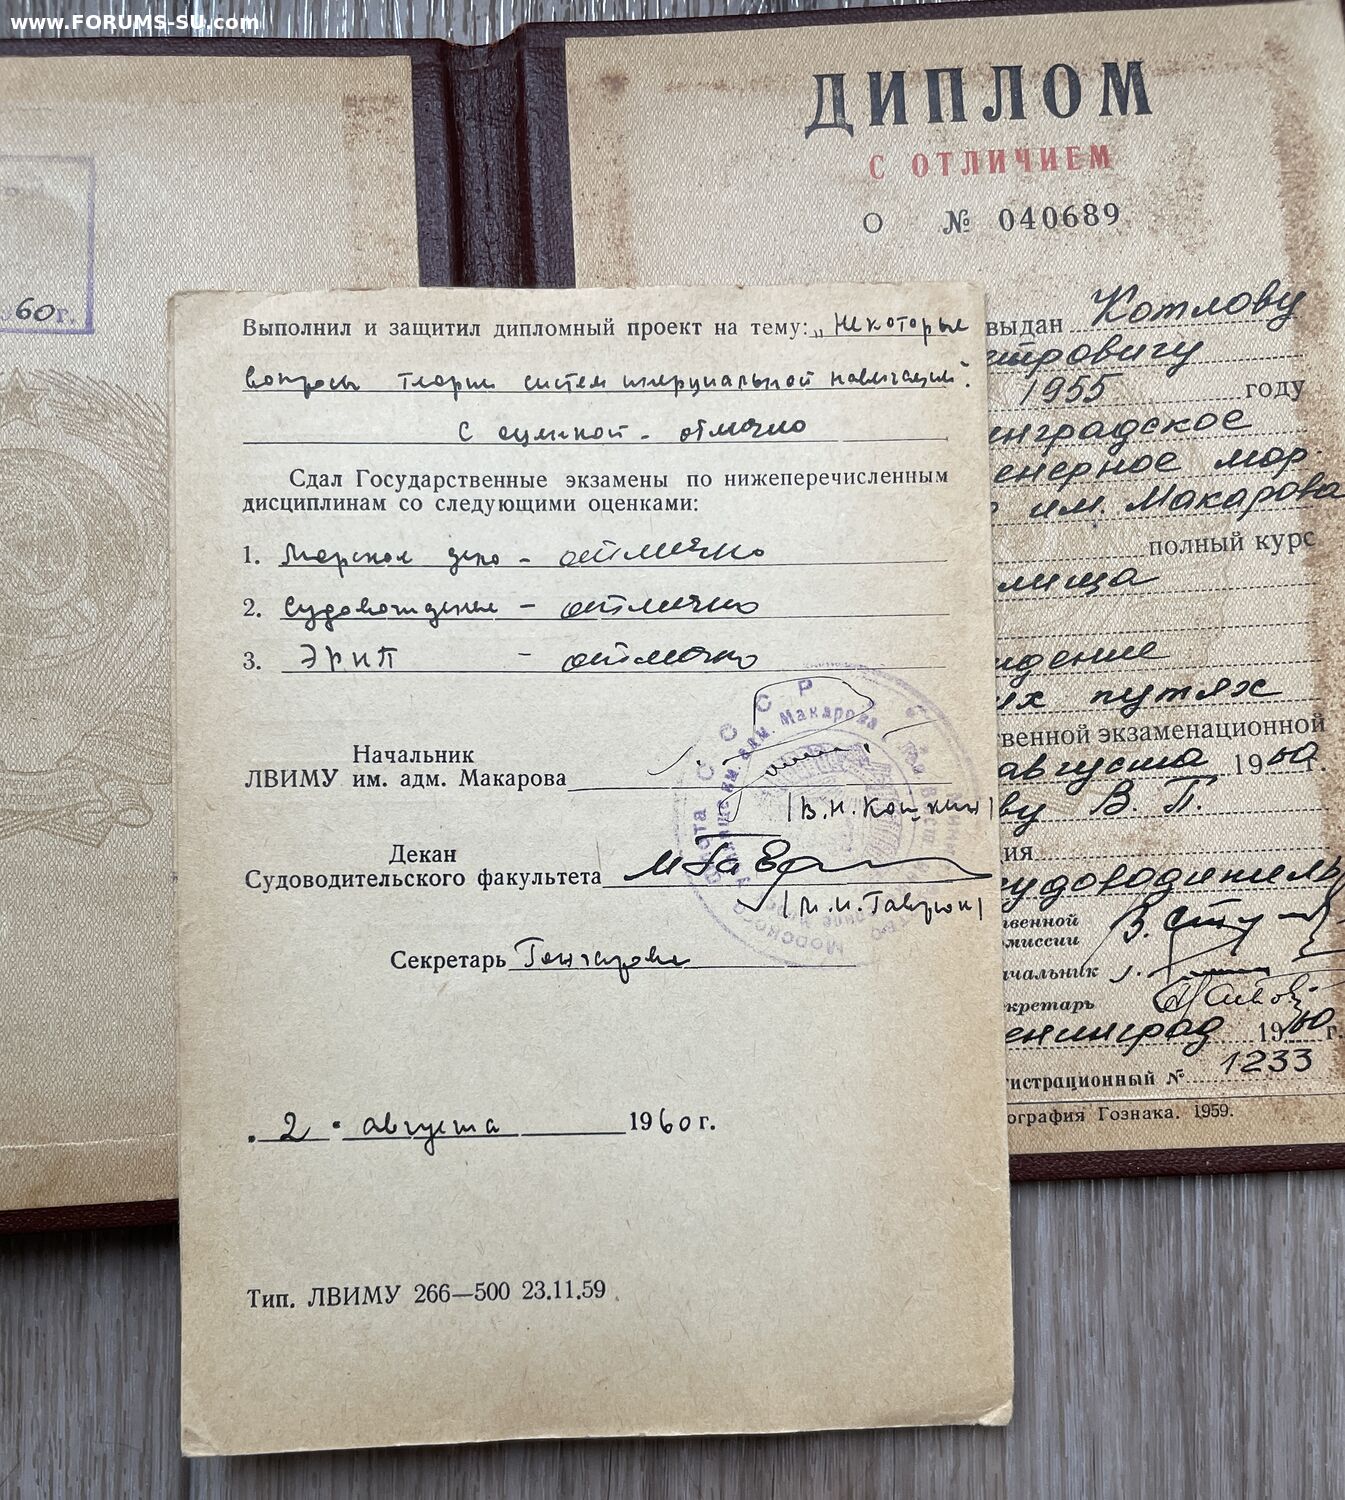 www.FORUMS-SU.com
60г.
ДИПЛОМ
С ОТЛИЧИЕМ
О № 040689
выдан Котлову
итровичу
1955 году
инградское
енерное мор-
им. Макарова
полный курс
лища
ждение
их путях
венной экзаменационной
августа 1960 г.
ву В. П.
ия
судоводитель
твенной
миссии
чальник
кретарь
енинград 1960 г.
гистрационный № 1233
ография Гознака. 1959.
Выполнил и защитил дипломный проект на тему: „Некоторые
вопросы теории систем инерциальной навигации".
С оценкой - отлично
Сдал Государственные экзамены по нижеперечисленным
дисциплинам со следующими оценками:
1. Морское дело - отлично
2. Судовождение - отлично
3. ЭРНП - отлично
СССР
им. адм. Макарова
Морского
Начальник
ЛВИМУ им. адм. Макарова
Декан
Судоводительского факультета
Секретарь Гончарова
„2" августа 1960 г.
Тип. ЛВИМУ 266—500 23.11.59